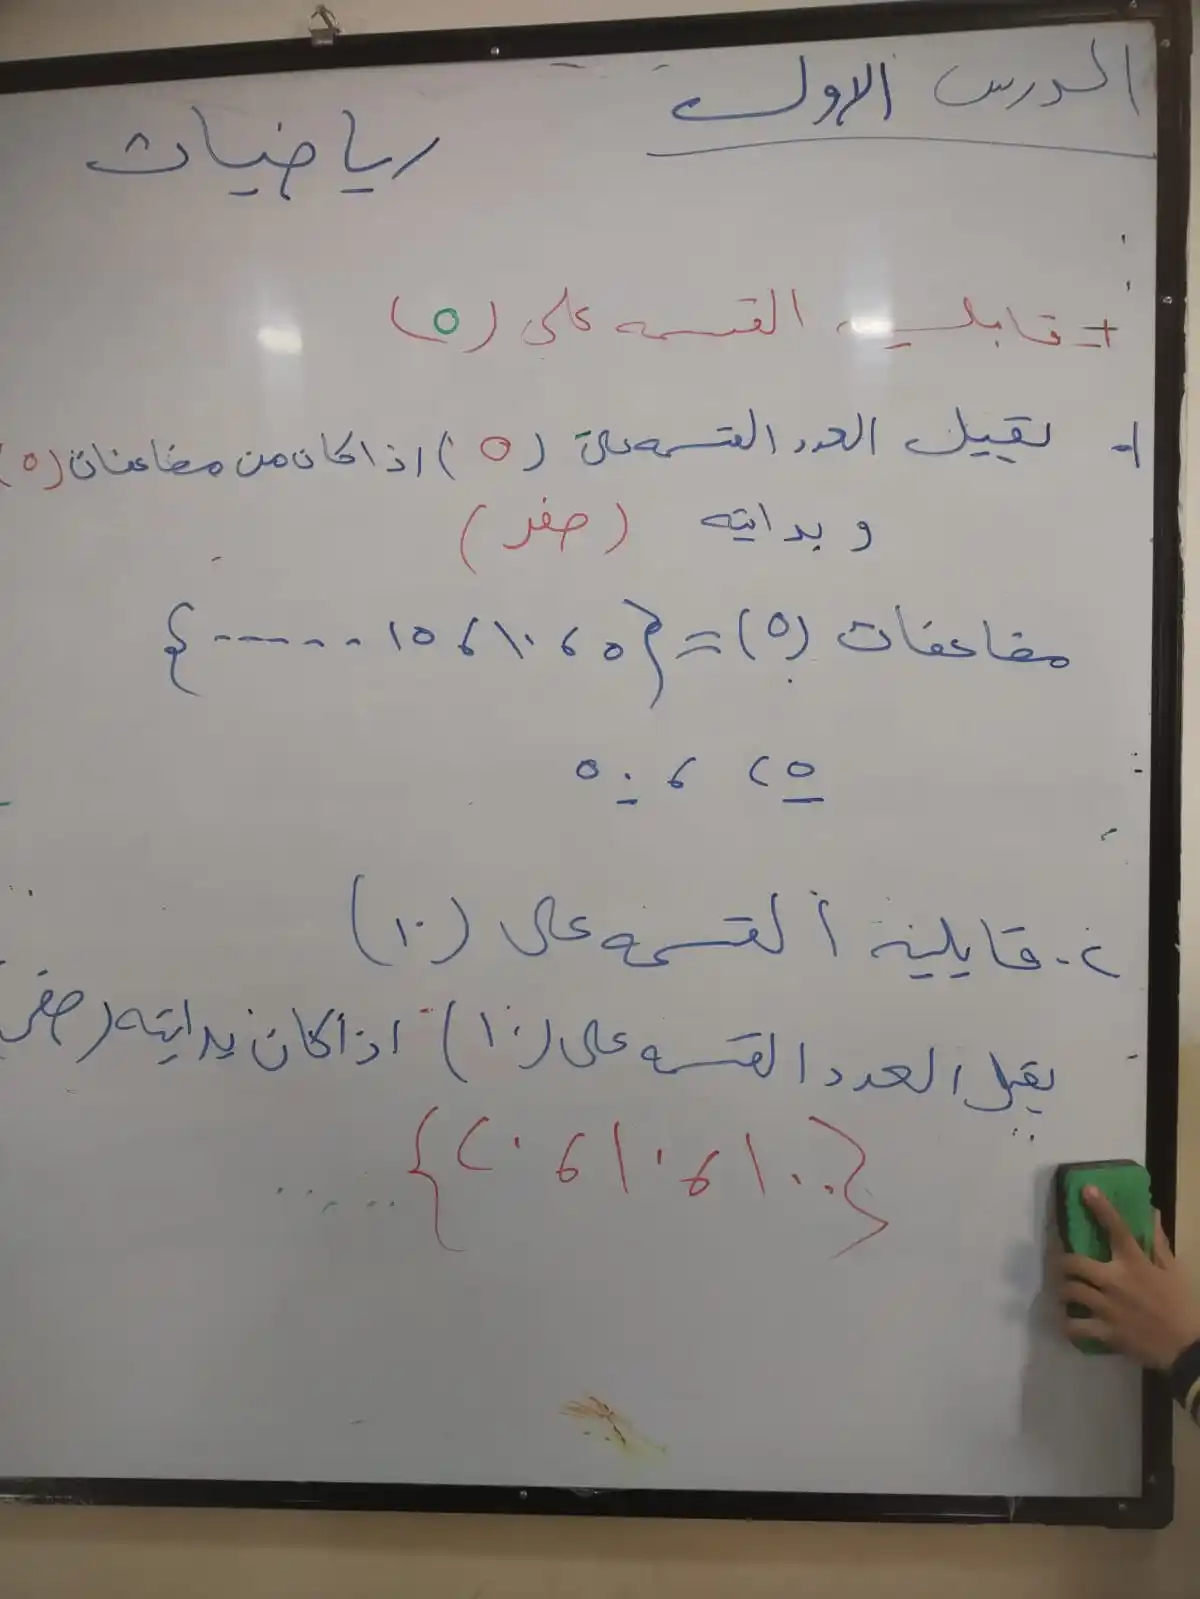 الدرس الاول
رياضيات
١- قابليه القسمه على (٥)
١- يقبل العدد القسمه على (٥) اذا كان من مضاعفات (٥)
و بدايته (صفر)
مضاعفات (٥) = {٥ ، ١٠ ، ١٥ .......}
٢٥ ، ٥٠
٢- قابلية ألقسمه على (١٠)
يقبل العدد القسمه على (١٠) اذا كان بدايته (صفر)
{١٠٠ ، ١٠ ، ٢٠} .....